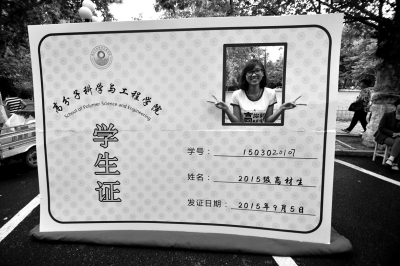 高分子科学与工程学院
School of Polymer Science and Engineering
学生证
学号: 1503020107
姓名: 2015级高材生
发证日期: 2015年9月5日